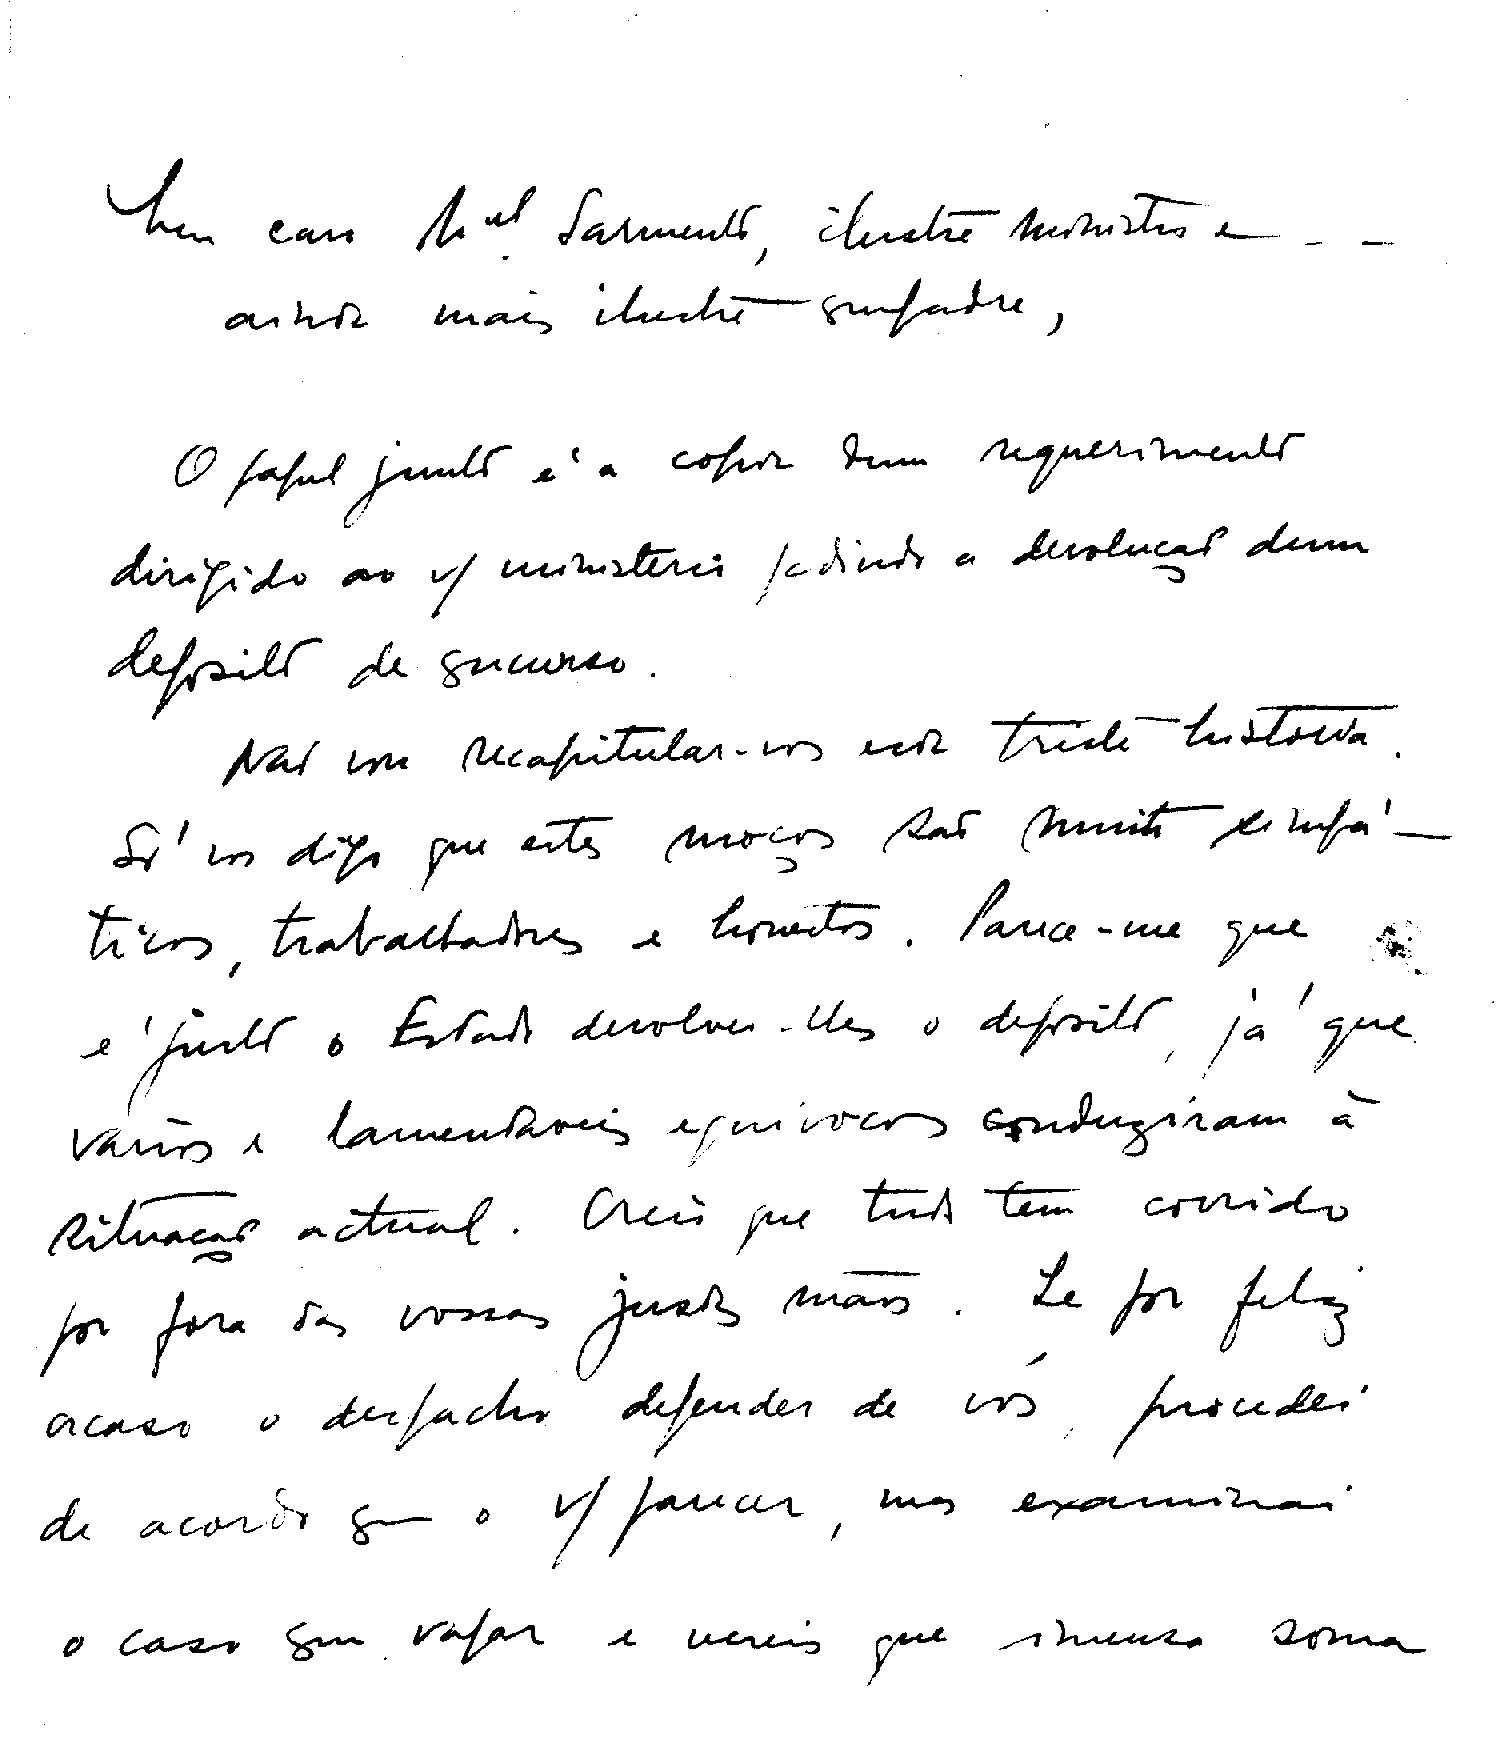 Meu caro M.el Sarmento, ilustre ministro e - -
ainda mais ilustre compadre,
O papel junto é a copia dum requerimento
dirigido ao v/ ministerio pedindo a devolução dum
deposito de concurso.
Não vou recapitular-vos esta triste historia.
Só vos digo que estes moços são muito simpá-
ticos, trabalhadores e honestos. Parece-me que
é justo o Estado devolver-lhes o deposito, já que
varios e lamentaveis equivocos conduziram à
situação actual. Creio que tudo tem corrido
por fora das vossas justas mãos. Se por feliz
acaso o despacho depender de vós, procedei
de acordo com o v/ parecer, mas examinai
o caso com vagar e vereis que imensa soma